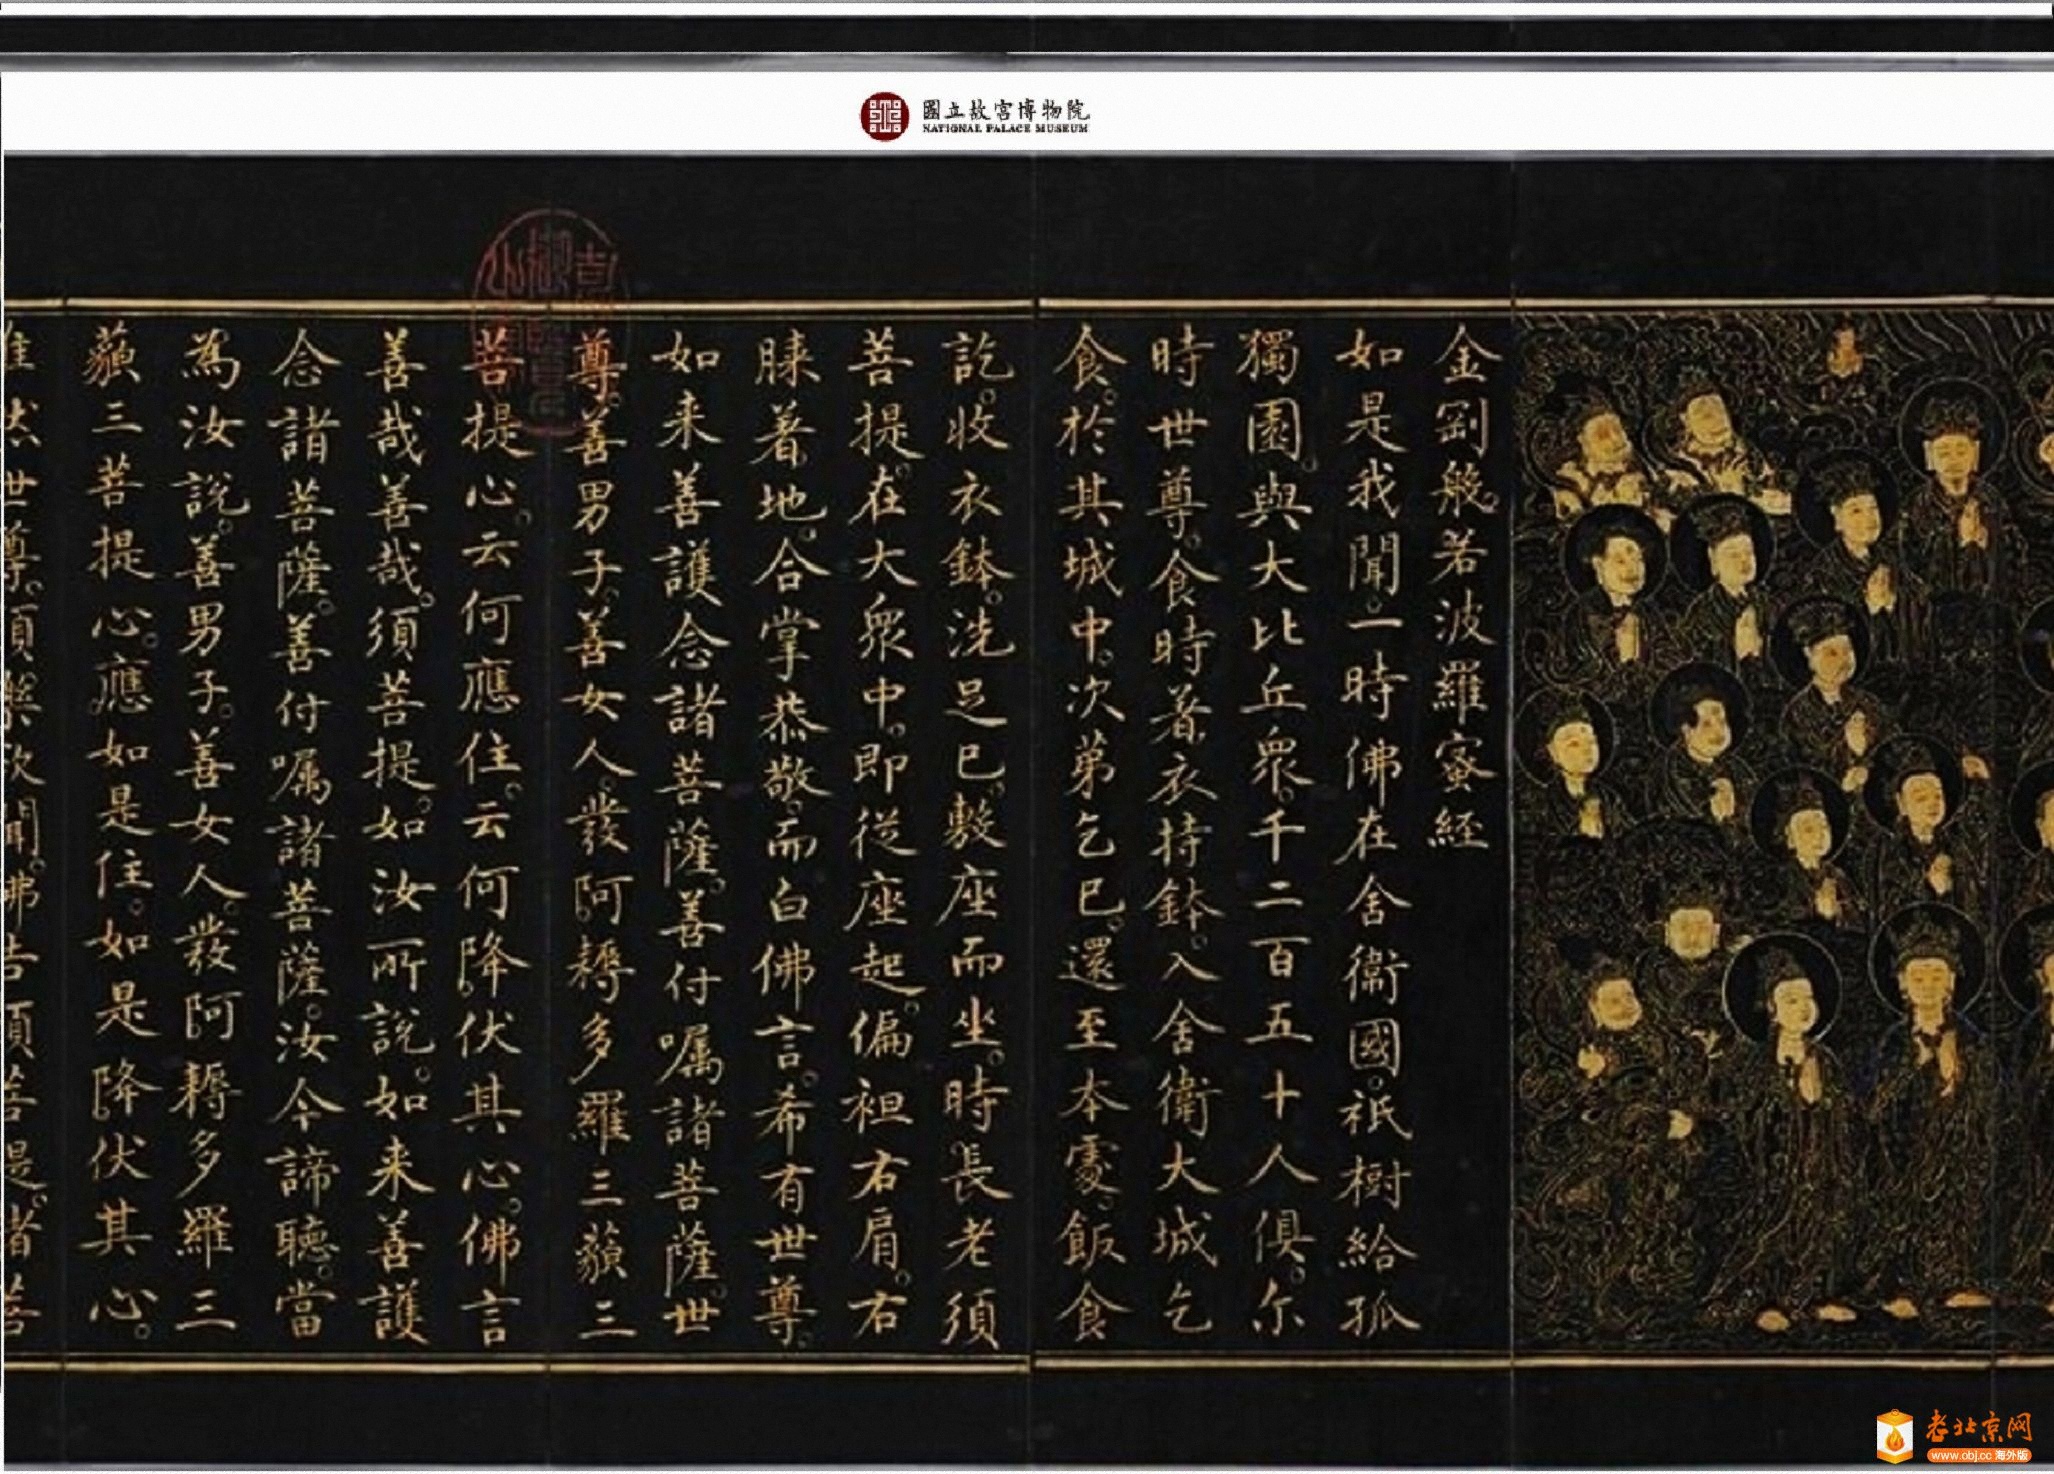 國立故宮博物院
NATIONAL PALACE MUSEUM
金剛般。若波羅蜜經
如是我聞。一時佛在舍衛國。祇樹給孤
獨園。與大比丘眾。千二百五十人俱。尒
時世尊。食時著衣持鉢。入舍衛大城乞
食。於其城中。次第乞已。還至本處。飯食
訖。收衣鉢。洗足已。敷座而坐。時長老須
菩提。在大眾中。即從座起。偏袒右肩。右
膝著地。合掌恭敬。而白佛言。希有世尊。
如来善護念諸菩薩。善付嘱諸菩薩。世
尊。善男子。善女人。發阿耨多羅三藐三
菩提心。云何應住。云何降伏其心。佛言
善哉善哉。須菩提。如汝所說。如来善護
念諸菩薩。善付嘱諸菩薩。汝今諦聽。當
為汝說。善男子。善女人。發阿耨多羅三
藐三菩提心。應如是住。如是降伏其心。
唯然世尊。願樂欲聞。佛告須菩提。諸菩
老北京网
www.obj.cc 海外版